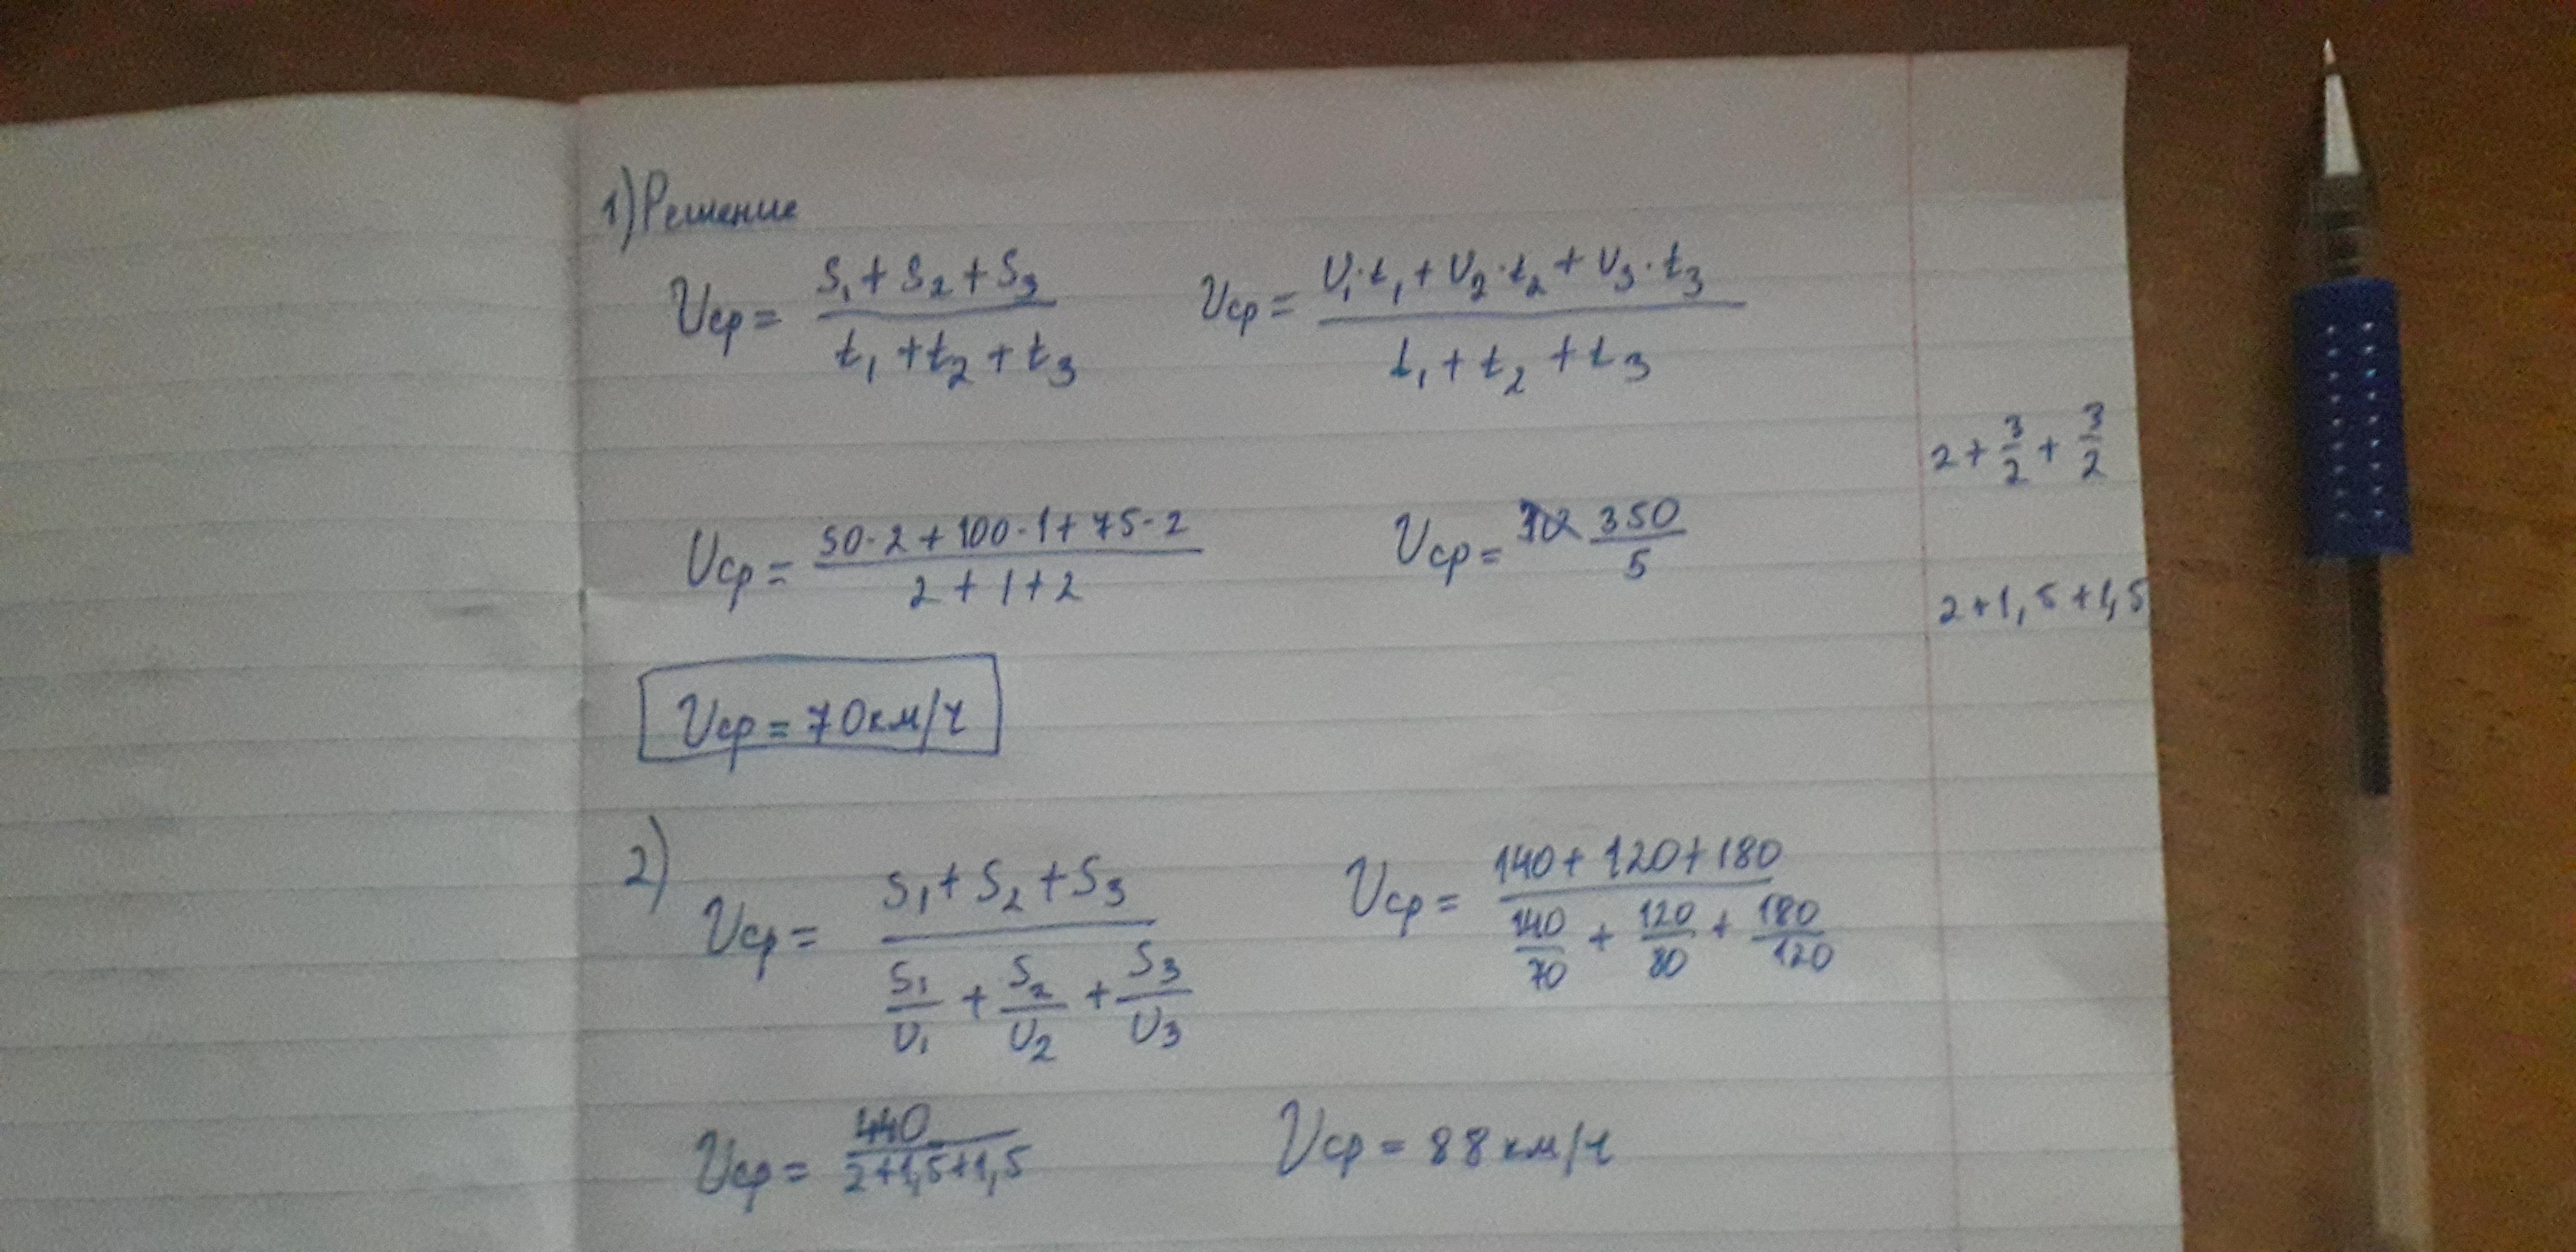 1) Решение
Vср = (S₁ + S₂ + S₃) / (t₁ + t₂ + t₃)   Vср = (V₁·t₁ + V₂·t₂ + V₃·t₃) / (t₁ + t₂ + t₃)
2 + 3/2 + 3/2
Vср = (50·2 + 100·1 + 75·2) / (2 + 1 + 2)   Vср = 350/5
2 + 1,5 + 1,5
Vср = 70км/ч
2)
Vср = (S₁ + S₂ + S₃) / (S₁/V₁ + S₂/V₂ + S₃/V₃)   Vср = (140 + 120 + 180) / (140/70 + 120/80 + 180/120)
Vср = 440 / (2+1,5+1,5)   Vср = 88 км/ч